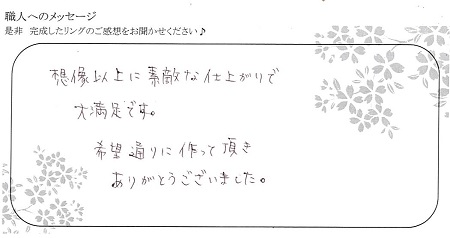 職人へのメッセージ
是非 完成したリングのご感想をお聞かせください♪
想像以上に素敵な仕上がりで
大満足です。
希望通りに作って頂き
ありがとうございました。